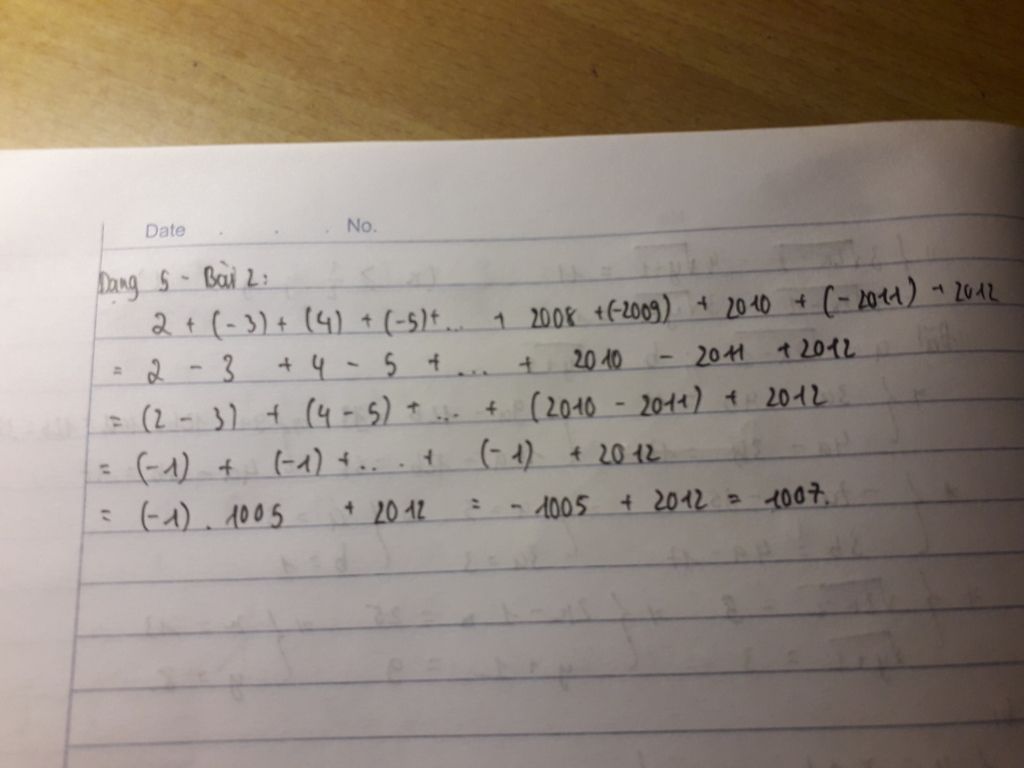 Date . . . No.
Dạng 5 - Bài 2:
2 + (-3) + (4) + (-5) + ... + 2008 + (-2009) + 2010 + (-2011) + 2012
= 2 - 3 + 4 - 5 + ... + 2010 - 2011 + 2012
= (2 - 3) + (4 - 5) + ... + (2010 - 2011) + 2012
= (-1) + (-1) + ... + (-1) + 2012
= (-1) . 1005 + 2012 = - 1005 + 2012 = 1007.